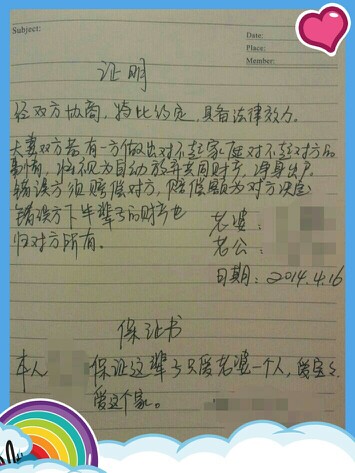 Subject:
Date:
Place:
Member:
证明
经双方协商,将比约定,具备法律效力。
夫妻双方若有一方做出对不起家庭对不起对方的
事情,将视为自动放弃共同财产,净身出户。
错误方须赔偿对方,赔偿额为对方决定
错误方下半辈子的财产也
归对方所有。
老婆:
老公:
日期:2014.4.16
保证书
本人 保证这辈子只爱老婆一个人,爱宝宝
爱这个家。